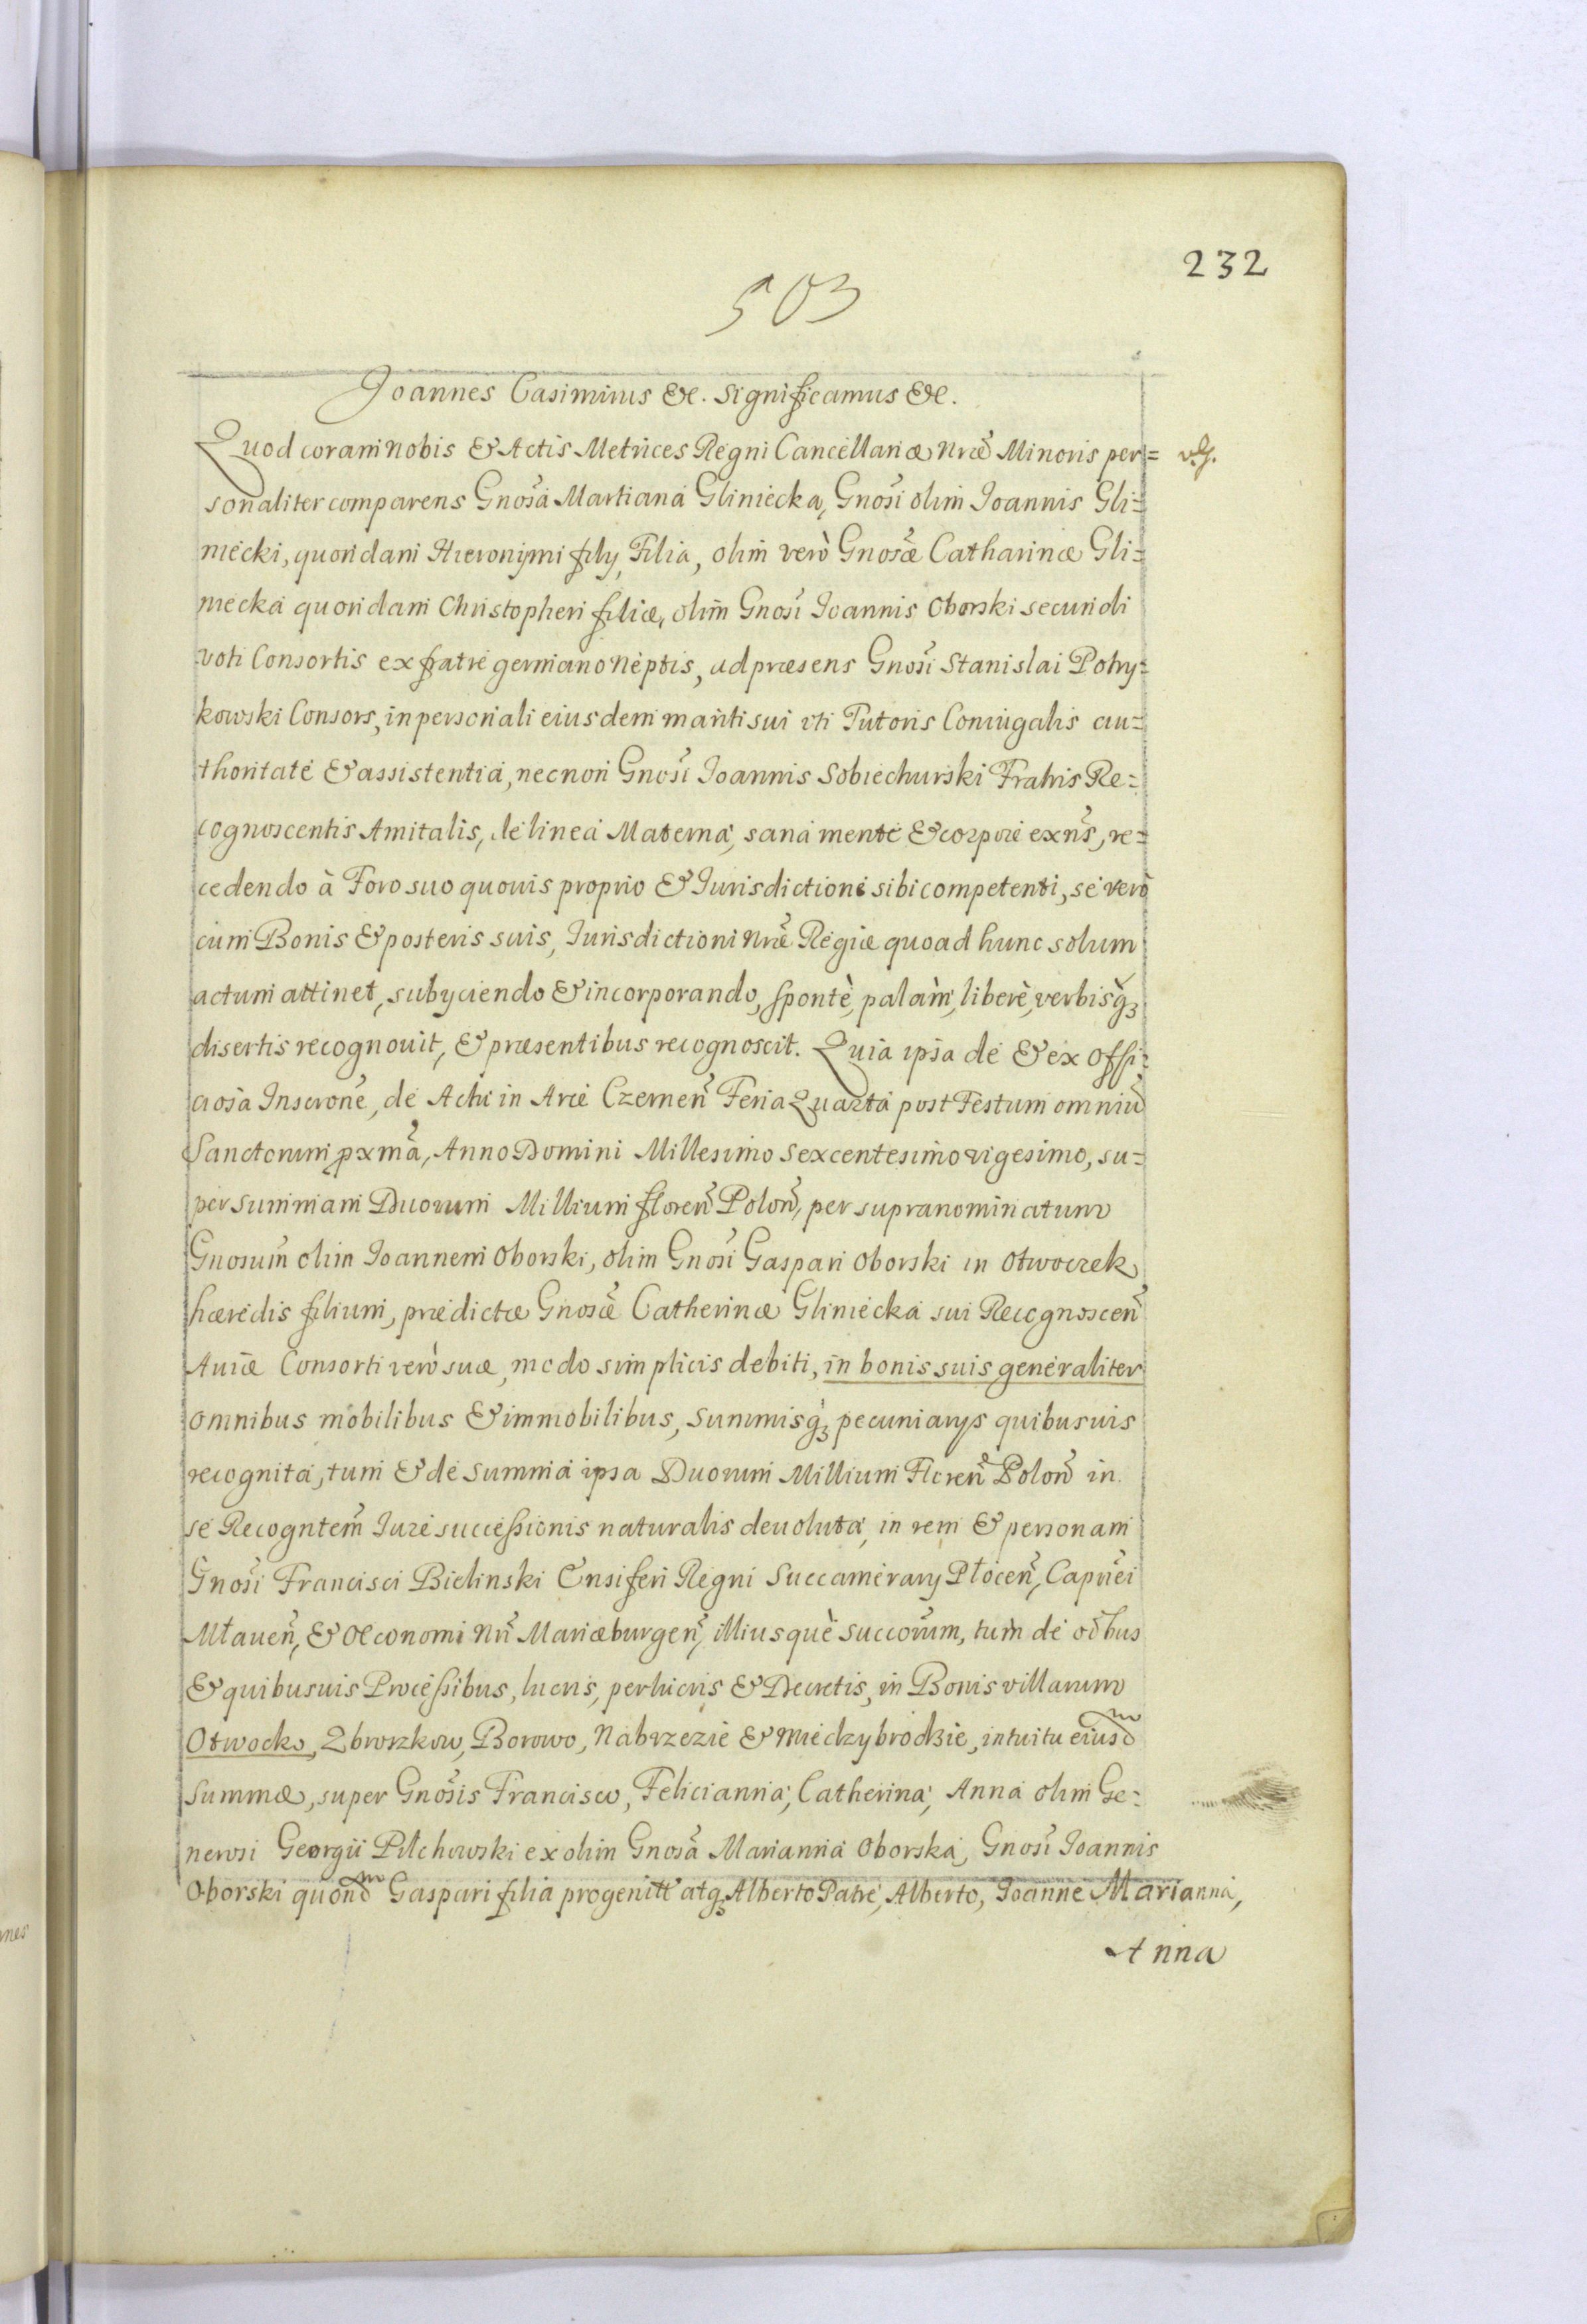 232
503
Joannes Casimirus &c. Significamus &c.
Quod coram nobis & Actis Metrices Regni Cancellariæ nræ Minoris per=
sonaliter comparens Gnosa Martiana Gliniecka, Gnosi olim Joannis Gli=
niecki, quondam Hieronijmi filÿ, Filia, olim verò Gnosæ Catharinæ Gli=
niecka quondam Christopheri filiæ, olim Gnosi Joannis Oborski secundi
voti Consortis ex fratre germano neptis, ad præsens Gnosi Stanislai Potry=
kowski Consors, in personali eiusdem mariti sui vti Tutoris Coniugalis au=
thoritate & assistentia, necnon Gnosi Joannis Sobiechurski Fratris Re=
cognoscentis Amitalis, de linea Materna, sana mente & corpore exns, re=
cedendo à Foro suo quouis proprio & Iurisdictione sibi competenti, se verò
cum Bonis & posteris suis, Iurisdictioni nræ Regiæ quoad hunc solum
actum attinet, subÿciendo & incorporando, sponte, palàm, liberè, verbisq3
disertis recognouit, & præsentibus recognoscit. Quia ipsa de & ex offi=
ciosa Inscrone, de Actu in Arce Czernen Feria Quarta post Festum omniu
Sanctorum pxma, Anno Domini Millesimo sexcentesimo vigesimo, su=
per summam Duorum Millium floren Polon, per supranominatum
Gnosum olim Joannem Oborski, olim Gnosi Gaspari Oborski in Otwoczek
hæredis filium, prædictæ Gnosæ Catherinæ Gliniecka sui Recognoscen
Auiæ Consorti verò suæ, modo simplicis debiti, in bonis suis generaliter
omnibus mobilibus & immobilibus, summisq3 pecuniarÿs quibusuis
recognita, tum & de summa ipsa Duorum Millium Floren Polon in
se Recogntem Iure successionis naturalis deuoluta, in rem & personam
Gnosi Francisci Bielinski Ensiferi Regni Succamerarÿ Płocen, Capnei
Mławen, & Oeconomi nri Mariæburgen, illiusquè succorum, tum de odbus
& quibusuis Processibus, lucris, perlucris & Decretis, in Bonis villarum
Otwocko, Zbroszkow, Borowo, Nabrzezie & Miedzybrodzie, intuitu eiusdm
summæ, super Gnosis Francisco, Felicianna, Catherina, Anna olim Ge=
nerosi Georgii Pilchowski ex olim Gnosa Marianna Oborska, Gnosi Joannis
Oborski quondm Gaspari filia progenitt atq3 Alberto Patre, Alberto, Joanne Marianna,
Anna